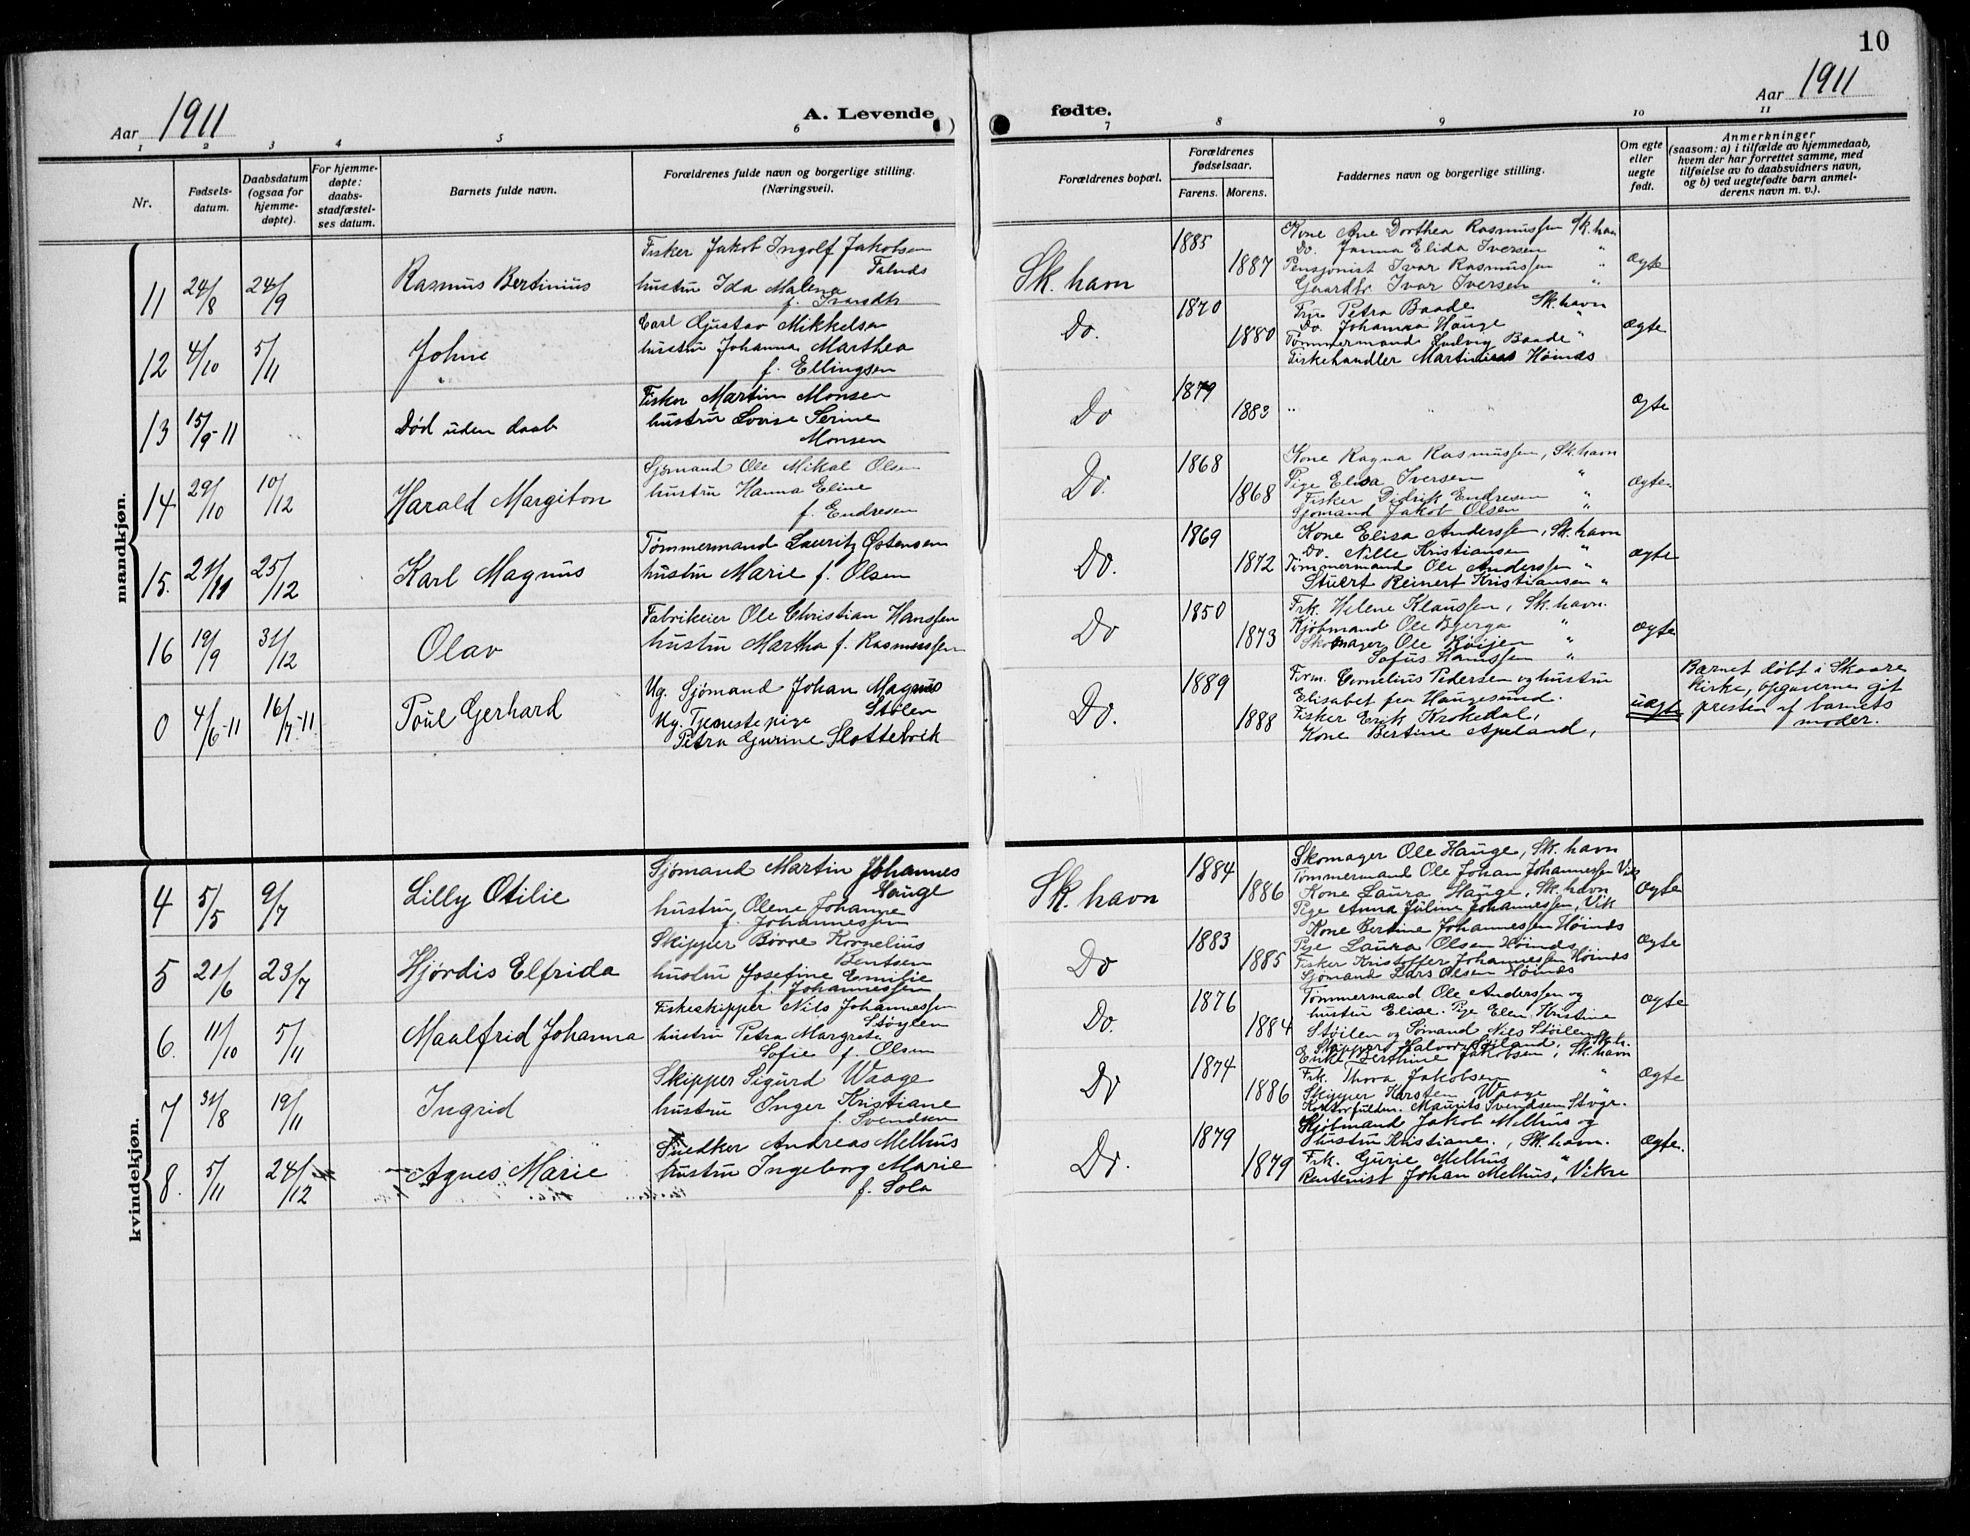 10
Aar 1911
A. Levende fødte.
Aar 1911
1 2 3 4 5 6 7 8 9 10 11
Nr.
Fødsels-
datum.
Daabsdatum
(ogsaa for
hjemme-
døpte).
For hjemme-
døpte:
daabs-
stadfæstel-
ses datum.
Barnets fulde navn.
Forældrenes fulde navn og borgerlige stilling.
(Næringsvei).
Forældrenes bopæl.
Forældrenes
fødselsaar.
Farens. Morens.
Faddernes navn og borgerlige stilling.
Om egte
eller
uegte
født.
Anmerkninger
(saasom: a) i tilfælde av hjemmedaab,
hvem der har forrettet samme, med
tilføielse av to daabsvidners navn,
og b) ved uegtefødte barn anmel-
derens navn m. v.).
mandkjøn.
11 24/8 24/9 Rasmus Bertinius
Fisker Jakob Ingolf Jakobsen
Falnds
hustru Ida Malena
Sk. havn 1885 1887
Kone Ane Dorthea Rasmussen Sk. havn
Do. Janna Elida Iversen "
Pensjonist Ivar Rasmussen "
Gaardbr. Ivar Iversen "
ægte
12 4/10 5/11 Johne
Carl Gustav Mikkelsen
hustru Johanna Marthea
f. Ellingsen
Do. 1870 1880
Frue Petra Baade Sk. havn
Do. Johanna Hauge "
Tømmermand Ludvig Baade "
Fiskehandler Martinius Høinds
ægte
13 15/9-11 Død uden daab
Fisker Martin Monsen
hustru Lovise Serine
Monsen
Do 1879 1883
ægte
14 29/10 10/12 Harald Margiton
Sjømand Ole Mikal Olsen
hustru Hanna Eline
f. Endresen
Do. 1868 1868
Kone Ragna Rasmussen, Sk. havn
Pige Elisa Iversen "
Fisker Didrik Endresen "
Sjømand Jakob Olsen "
ægte
15. 21/11 25/12 Karl Magnus
Tømmermand Lauritz Østensen
hustru Marie f. Olsen
Do. 1869 1872
Kone Elisa Anderssen, Sk. havn
Do. Nille Kristiansen "
Tømmermand Ole Anderssen "
Stuert Reinert Kristiansen "
ægte
16 19/9 31/12 Olav
Fabrikeier Ole Christian Hanssen
hustru Martha f. Rasmussen
Do 1850 1873
Frk. Helene Klaussen, Sk. havn.
Kjøbmand Ole Bjerga "
Skomager Ole "
Sofus Hanssen "
ægte
0 4/6-11 16/7-11 Poul Gerhard
Ug. Sjømand Johan Magnus
Stølen
Ug. Tjenestepige
Petra Gurine Slottebrik
Do. 1889 1888
Form. Cornelius Pedersen og hustru
Elisabet fra Haugesund.
Fisker Erik Krokedal,
Kone Bertine Apeland,
uægte
Barnet døbt i Skaare
kirke, opgaverne git
presten af barnets
moder.
kvindekjøn.
4 5/5 9/7 Lilly Otilie
Sjømand Martin Johannes
Hauge
hustru Olene Johanne
f. Johannessen
Sk. havn 1884 1886
Skomager Ole Hauge, Sk. havn
Tømmermand Ole Johan Johannessen Vik
Kone Laura Hauge, Sk. havn
Pige Anna Juline Johannessen, Vik
ægte
5 21/6 23/7 Hjørdis Elfrida
Skipper Børre Kornelius
Bentsen
hustru Josefine Emilie
f. Johannessen
Do 1883 1885
Kone Bertine Johannessen Høinds
Pige Laura Olsen Høinds
Fisker Kristoffer Johannessen Høinds
Sjømand Lars Olsen Høinds
ægte
6. 11/10 5/11 Maalfrid Johanna
Fiskeskipper Nils Johannessen
Støylen
hustru Petra Margrete
Sofie f. Olsen
Do. 1876 1884
Tømmermand Ole Anderssen og
hustru Elise. Pige Elen Kristine
Støilen og Sømand Niels Støilen
ægte
7 31/8 19/11 Ingrid
Skipper Sigurd Waage
hustru Inger Kristiane
f. Svendsen
Do 1874 1886
Enke Berthine Jakobsen, Sk. havn
Frk. Thora Jakobsen "
Skipper Karsten Waage "
Kontorfuldm. Maurits Svendsen Stvgr.
ægte
8. 5/11 24/12 Agnes Marie
Snedker Andreas Melhus
hustru Ingeborg Marie
f. Sola
Do. 1879 1879
Kjøbmand Jakob Melhus og
hustru Kristiane., Sk. havn.
Frk. Gurie Melhus "
Rentenist Johan Melhus, Vikre
ægte.